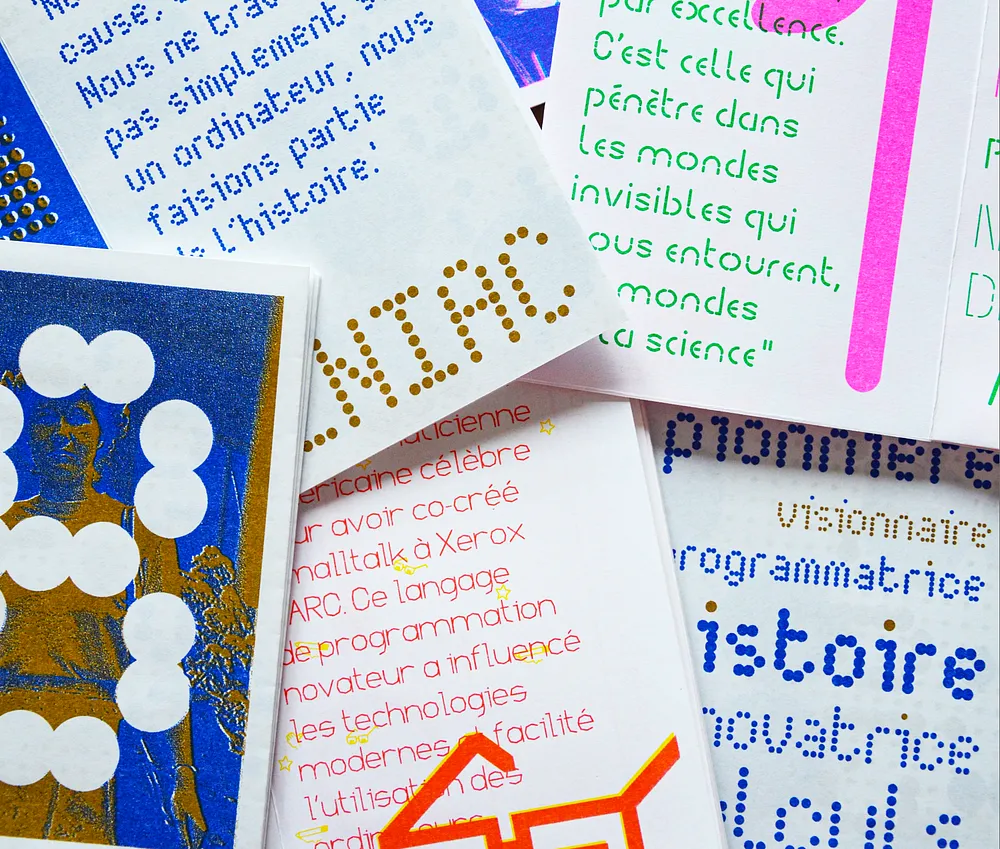 cause,
Nous ne
pas simplement
un ordinateur, nous
faisions partie
l'histoire.'
ENIAC
par excellence.
C'est celle qui
pénètre dans
les mondes
invisibles qui
ous entourent,
mondes
la science"
aticienne
ericaine célèbre
ur avoir co-créé
malltalk à Xerox
ARC. Ce langage
de programmation
novateur a influencé
les technologies
modernes facilité
l'utilisation des
pionnière
visionnaire
rogrammatrice
istoire
novatrice